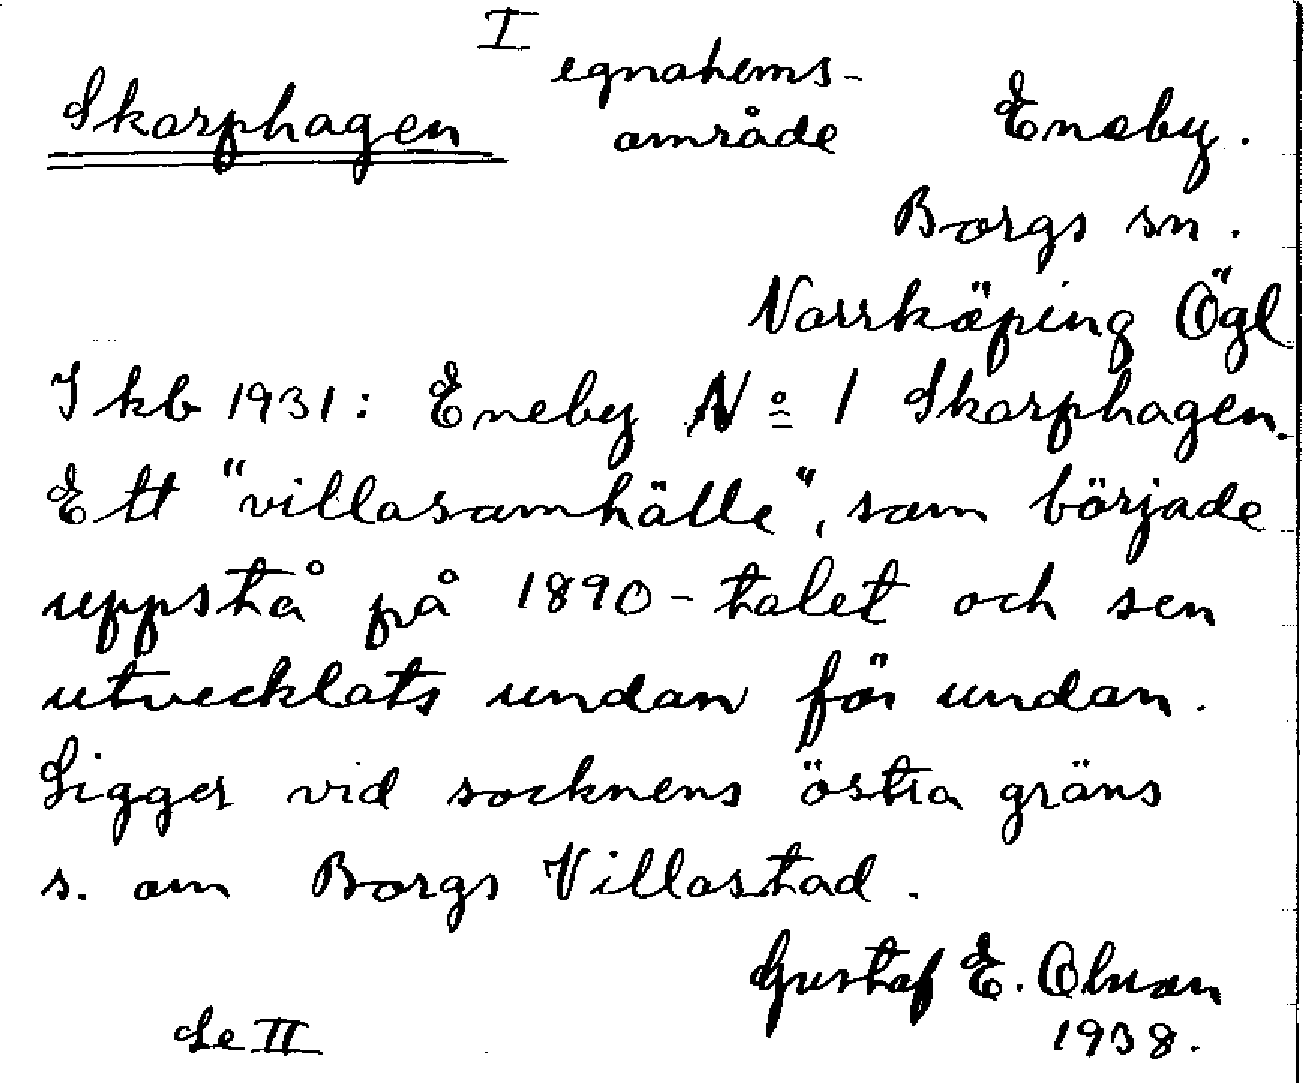 I
Skarphagen egnahems-
område Eneby.
Borgs sn.
Norrköping Ögl
I kb 1931: Eneby No 1 Skarphagen.
Ett "villasamhälle", som började
uppstå på 1890-talet och sen
utvecklats undan för undan.
Ligger vid socknens östra gräns
s. om Borgs Villastad.
Gustaf E. Olson
1938.
Se II